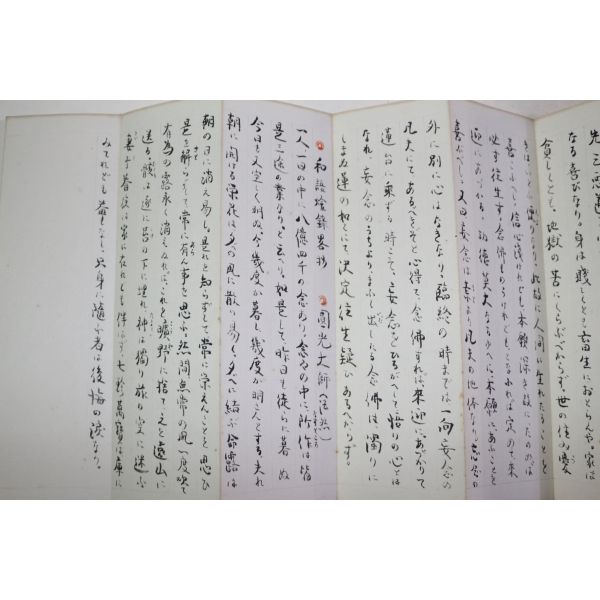 先三悪道
なる喜びなり。身は賤しくとも畜生におとらんや。家は
貧しくとも、地獄の苦にくらぶべからず。世の住み憂
きはいとふ便りなり。此故に人間に生れたることを
喜ぶべし。信心浅けれども本願深き故にたのめば
必ず往生す。念佛ものうけれども、となふれば定めて来
迎にあづかる。功徳莫大なる少へに、本願にあふことを
喜ぶべし。又曰妄念は元より凡夫の地体なり。妄念の
外に別に心はなきなり。臨終の時までは一向妄念の
凡夫にてあるべきぞと心得て念佛すれば、来迎にあづかりて
蓮台に乗ずる時こそ、妄念をひるがへして悟りの心とは
なれ。妄念のうちよりまふし出したる念佛は濁りに
しまぬ蓮の如くにて決定往生疑ひあるべからず。
和語燈録畧抄 圓光大師
一人、一日の中に八億四千の念あり。念々の中に所作は皆
是三途の業なり。と云へり。如是して昨日も徒らに暮ぬ
今日も又空しく明ぬ。今幾度か暮し幾度か明さんとする。夫れ
朝に開ける栄花は夕の風に散り易く、夕べに結ぶ命露は
朝の日に消え易し。是れを知らずして常に栄えんことを思ひ
是を解らずして常に有ん事を思ふ。然間無常の風一度吹て
有為の露永く消えぬれば、これを曠野に捨て、これを遠山に
送る。骸は遂に苔の下に埋れ、神は獨り旅の空に迷ふ。
妻子眷族は家に在れども伴はず。七珍萬寶は庫に
みてれども益もなし。只身に隨ふ者は後悔の涙なり。